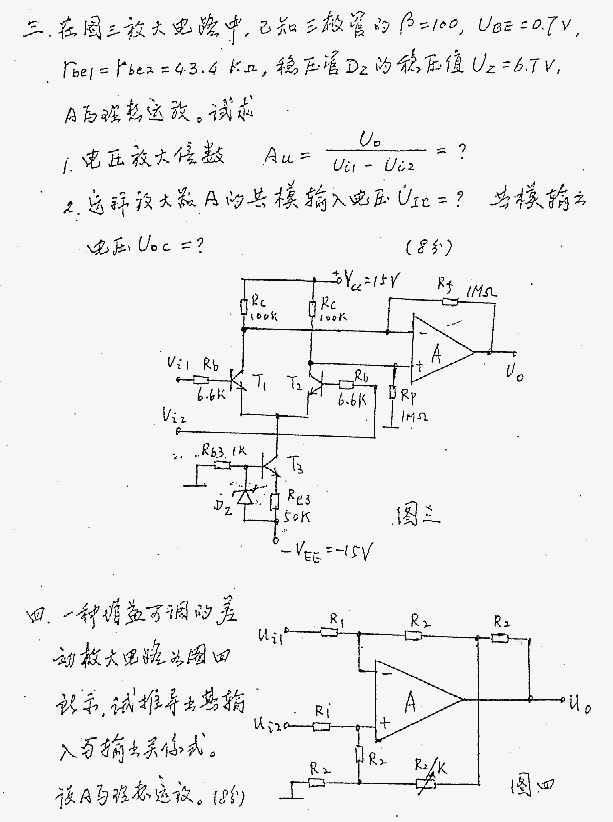 三. 在图三放大电路中, 已知三极管的 β=100, UBE=0.7V,
rbe1=rbe2=43.4 KΩ, 稳压管DZ的稳压值UZ=6.7V,
A为理想运放。试求
1. 电压放大倍数 Au = Uo / (Ui1 - Ui2) = ?
2. 运算放大器A的共模输入电压UIC=? 共模输出
电压UOC=? (8分)
+Vcc=15V
Rc 100K
Rc 100K
Rf 1MΩ
A
Uo
Vi1
Rb 6.6K
T1
T2
Rb 6.6K
Rp 1MΩ
Vi2
Rb3 1K
T3
DZ
Re3 50K
-VEE=-15V
图三
四. 一种增益可调的差
动放大电路如图四
所示, 试推导出其输
入与输出关係式。
设A为理想运放。(8分)
Ui1
R1
R2
R2
A
Uo
Ui2
R1
R2
R2
R2/K
图四